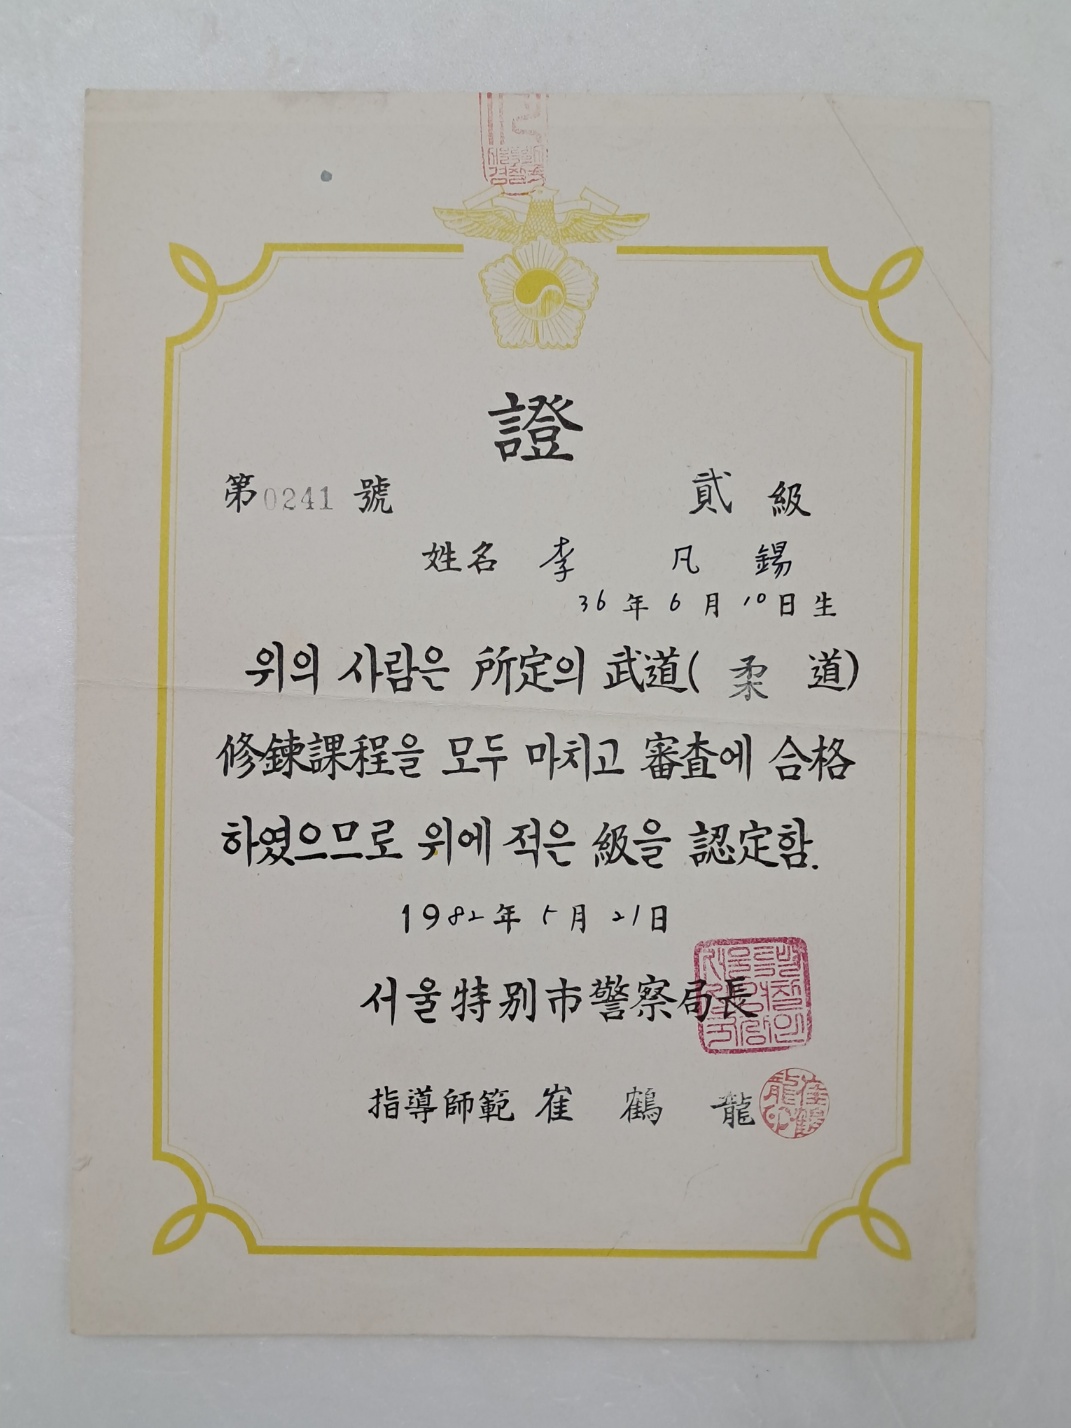 證
第0241號 貳級
姓名 李凡錫
36年6月10日生
위의 사람은 所定의 武道(柔道)
修鍊課程을 모두 마치고 審査에 合格
하였으므로 위에 적은 級을 認定함.
1982年5月21日
서울特別市警察局長
指導師範 崔鶴龍